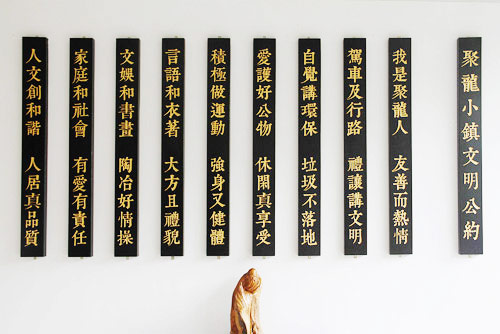 聚龍小鎮文明公約
我是聚龍人 友善而熱情
駕車及行路 禮讓講文明
自覺講環保 垃圾不落地
愛護好公物 休閑真享受
積極做運動 強身又健體
言語和衣著 大方且禮貌
文娛和書畫 陶冶好情操
家庭和社會 有愛有責任
人文創和諧 人居真品質